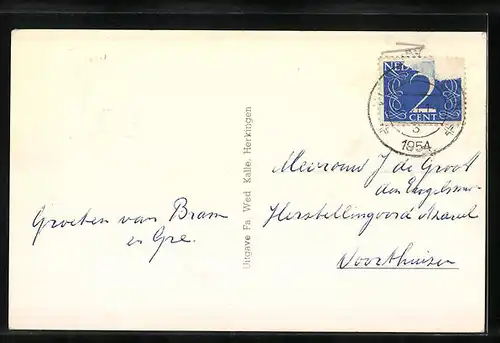 NED
2
CENT
3
1954
Mevrouw J de Groot
den Engelsman
Herstellingsoord
Voorthuizen
Groeten van Bram
en Gre.
Uitgave Fa Wed Kalle, Herkingen